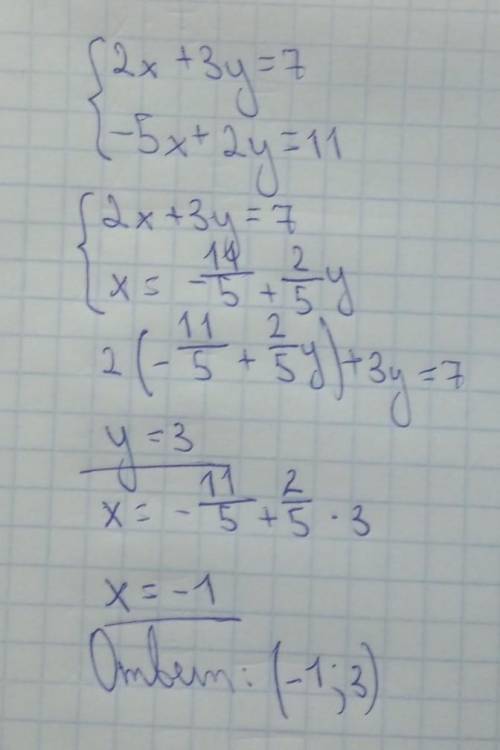 {2x + 3y = 7
-5x + 2y = 11
{2x + 3y = 7
x = -11/5 + 2/5 y
2(-11/5 + 2/5 y) + 3y = 7
y = 3
x = -11/5 + 2/5 · 3
x = -1
Ответ: (-1; 3)